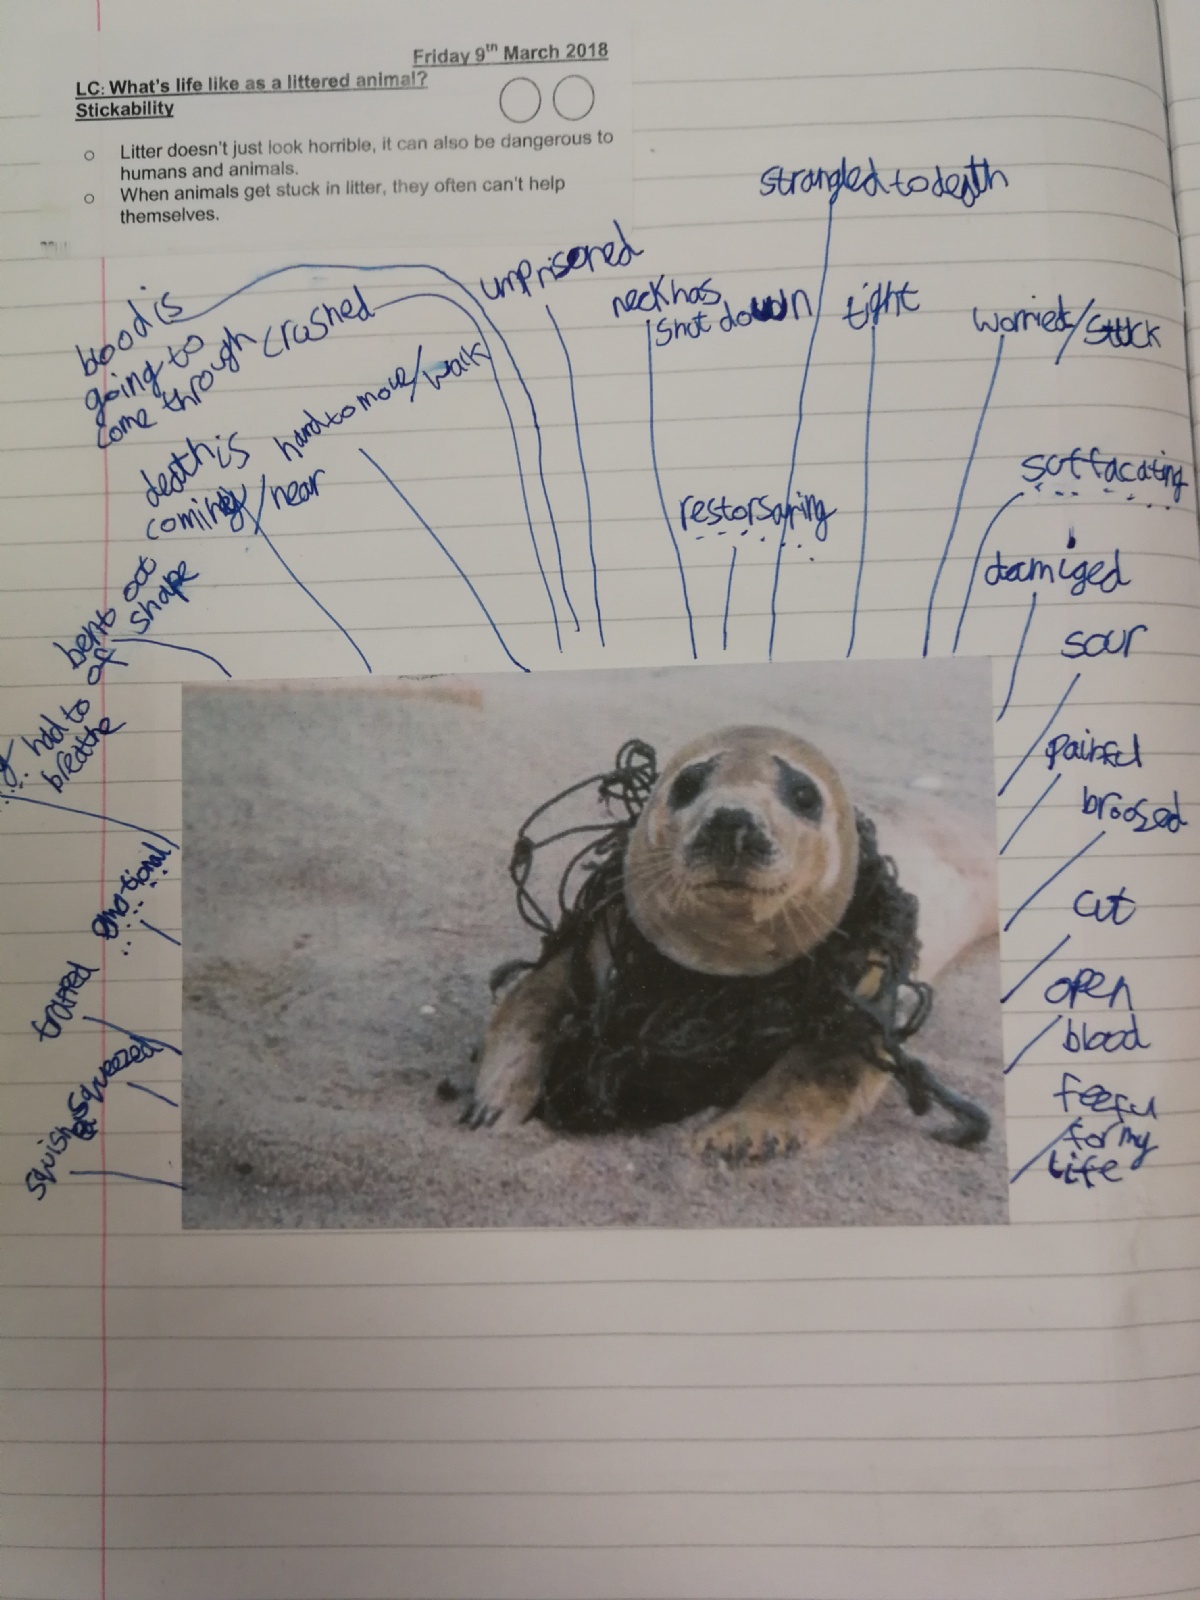 Friday 9th March 2018
LC: What's life like as a littered animal?
Stickability
o Litter doesn't just look horrible, it can also be dangerous to
humans and animals.
o When animals get stuck in litter, they often can't help
themselves.
strangled to death
umprisoned
neck has
shut down
tight
worried/stuck
blood is
going to
come through
crushed
hard to move/walk
death is
coming/near
suffacating
restorsaring
damiged
bent out
of shape
sour
had to
breathe
painful
broosed
emotional
cut
open
blood
squeezed
feeful
for my
life
squish